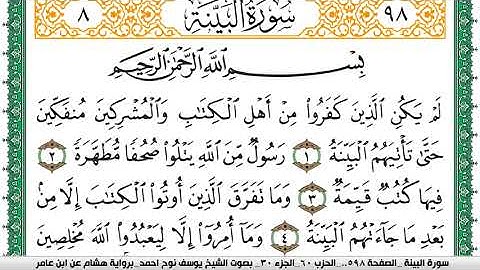 ٩٨ سُورَةُ الْبَيِّنَة ٨
بِسْمِ اللَّهِ الرَّحْمَٰنِ الرَّحِيمِ
لَمْ يَكُنِ الَّذِينَ كَفَرُوا مِنْ أَهْلِ الْكِتَابِ وَالْمُشْرِكِينَ مُنفَكِّينَ
حَتَّىٰ تَأْتِيَهُمُ الْبَيِّنَةُ ١ رَسُولٌ مِّنَ اللَّهِ يَتْلُوا صُحُفًا مُّطَهَّرَةً ٢
فِيهَا كُتُبٌ قَيِّمَةٌ ٣ وَمَا تَفَرَّقَ الَّذِينَ أُوتُوا الْكِتَابَ إِلَّا مِنۢ
بَعْدِ مَا جَاءَتْهُمُ الْبَيِّنَةُ ٤ وَمَا أُمِرُوا إِلَّا لِيَعْبُدُوا اللَّهَ مُخْلِصِينَ
سورة البينة _الصفحة ٥٩٨... الحزب ٦٠_الجزء ٣٠_ بصوت الشيخ يوسف نوح احمد_برواية هشام عن ابن عامر